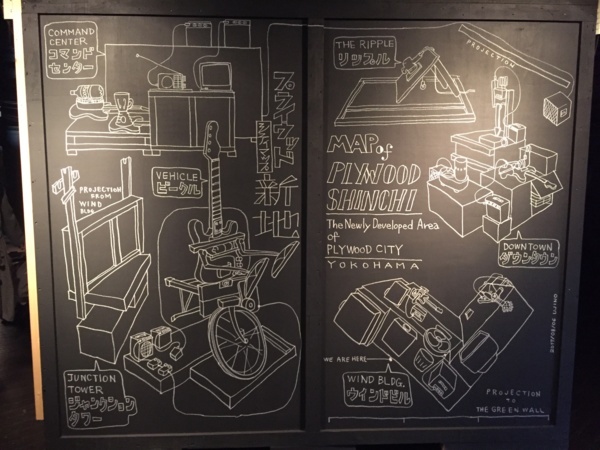 COMMAND
CENTER
コマンド
センター
PROJECTION
FROM
WIND
BLDG.
VEHICLE
ビークル
JUNCTION
TOWER
ジャンクション
タワー
プライウッド
新地
THE RIPPLE
リップル
PROJECTION
MAP of
PLYWOOD
SHINCHI
The Newly Developed Area
of
PLYWOOD CITY
YOKOHAMA
DOWNTOWN
ダウンタウン
WE ARE HERE
WIND BLDG.
ウインドビル
PROJECTION
TO
THE GREEN WALL